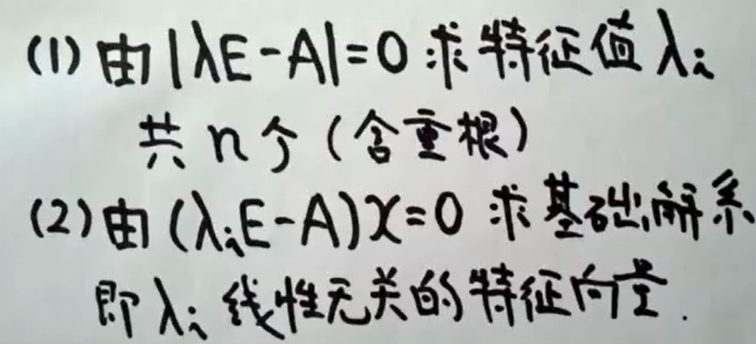 (1) 由|λE-A|=0 求特征值 λᵢ
共 n 个 (含重根)
(2) 由 (λᵢE-A)x=0 求基础解系
即 λᵢ 线性无关的特征向量.